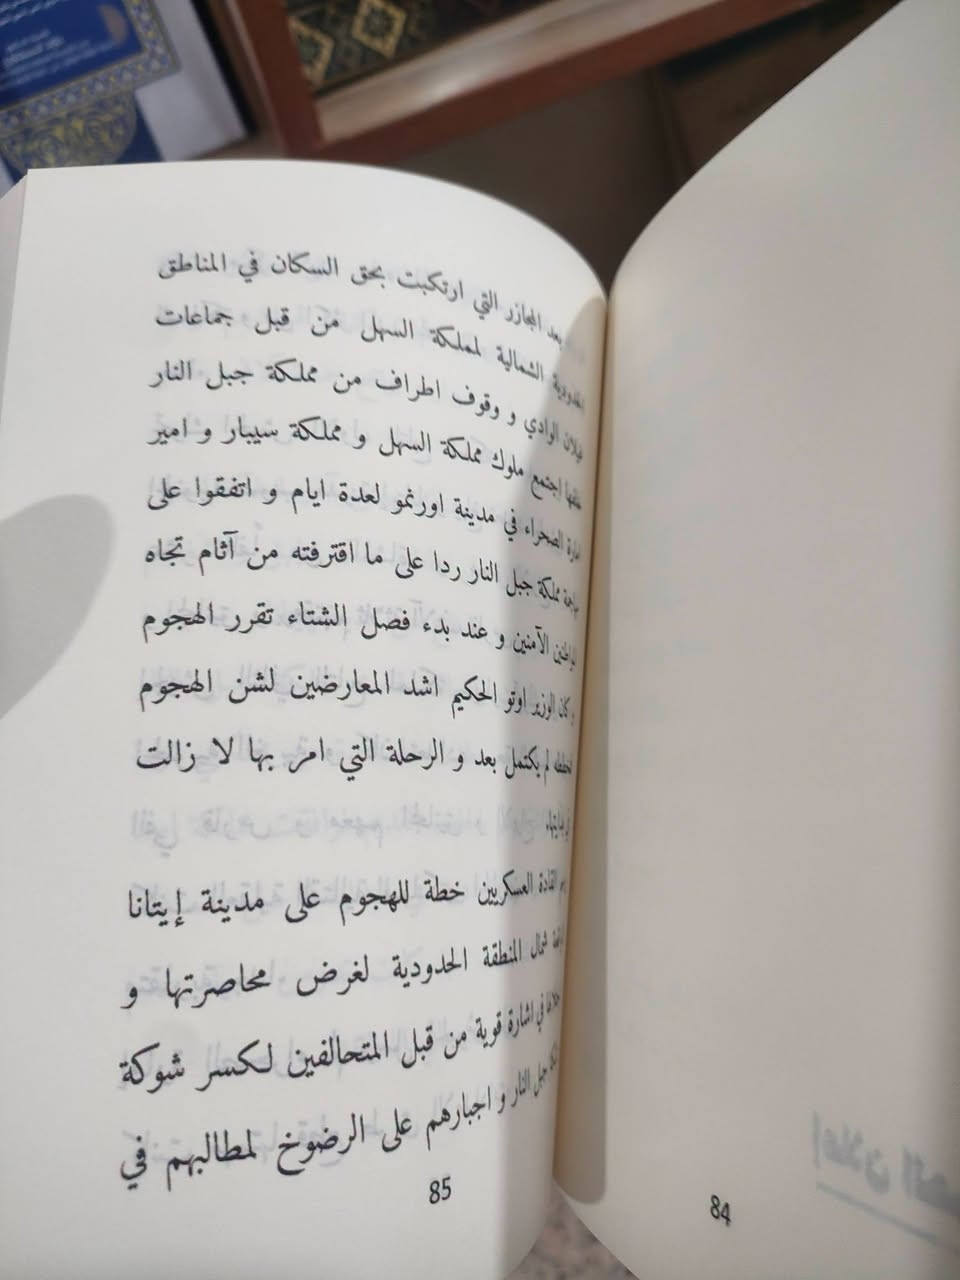 بعد المجازر التي ارتكبت بحق السكان في المناطق
الحدودية الشمالية لمملكة السهل من قبل جماعات
غيلان الوادي و وقوف اطراف من مملكة جبل النار
خلفها اجتمع ملوك مملكة السهل و مملكة سيبار و امير
امارة الصحراء في مدينة اورنمو لعدة ايام و اتفقوا على
مهاجمة مملكة جبل النار ردا على ما اقترفته من آثام تجاه
المواطنين الآمنين و عند بدء فصل الشتاء تقرر الهجوم
و كان الوزير اوتو الحكيم اشد المعارضين لشن الهجوم
فخططه لم يكتمل بعد و الرحلة التي امر بها لا زالت
في بدايتها.
القادة العسكريين خطة للهجوم على مدينة إيتانا
شمال المنطقة الحدودية لغرض محاصرتها و
في اشارة قوية من قبل المتحالفين لكسر شوكة
جبل النار و اجبارهم على الرضوخ لمطالبهم في
85
84